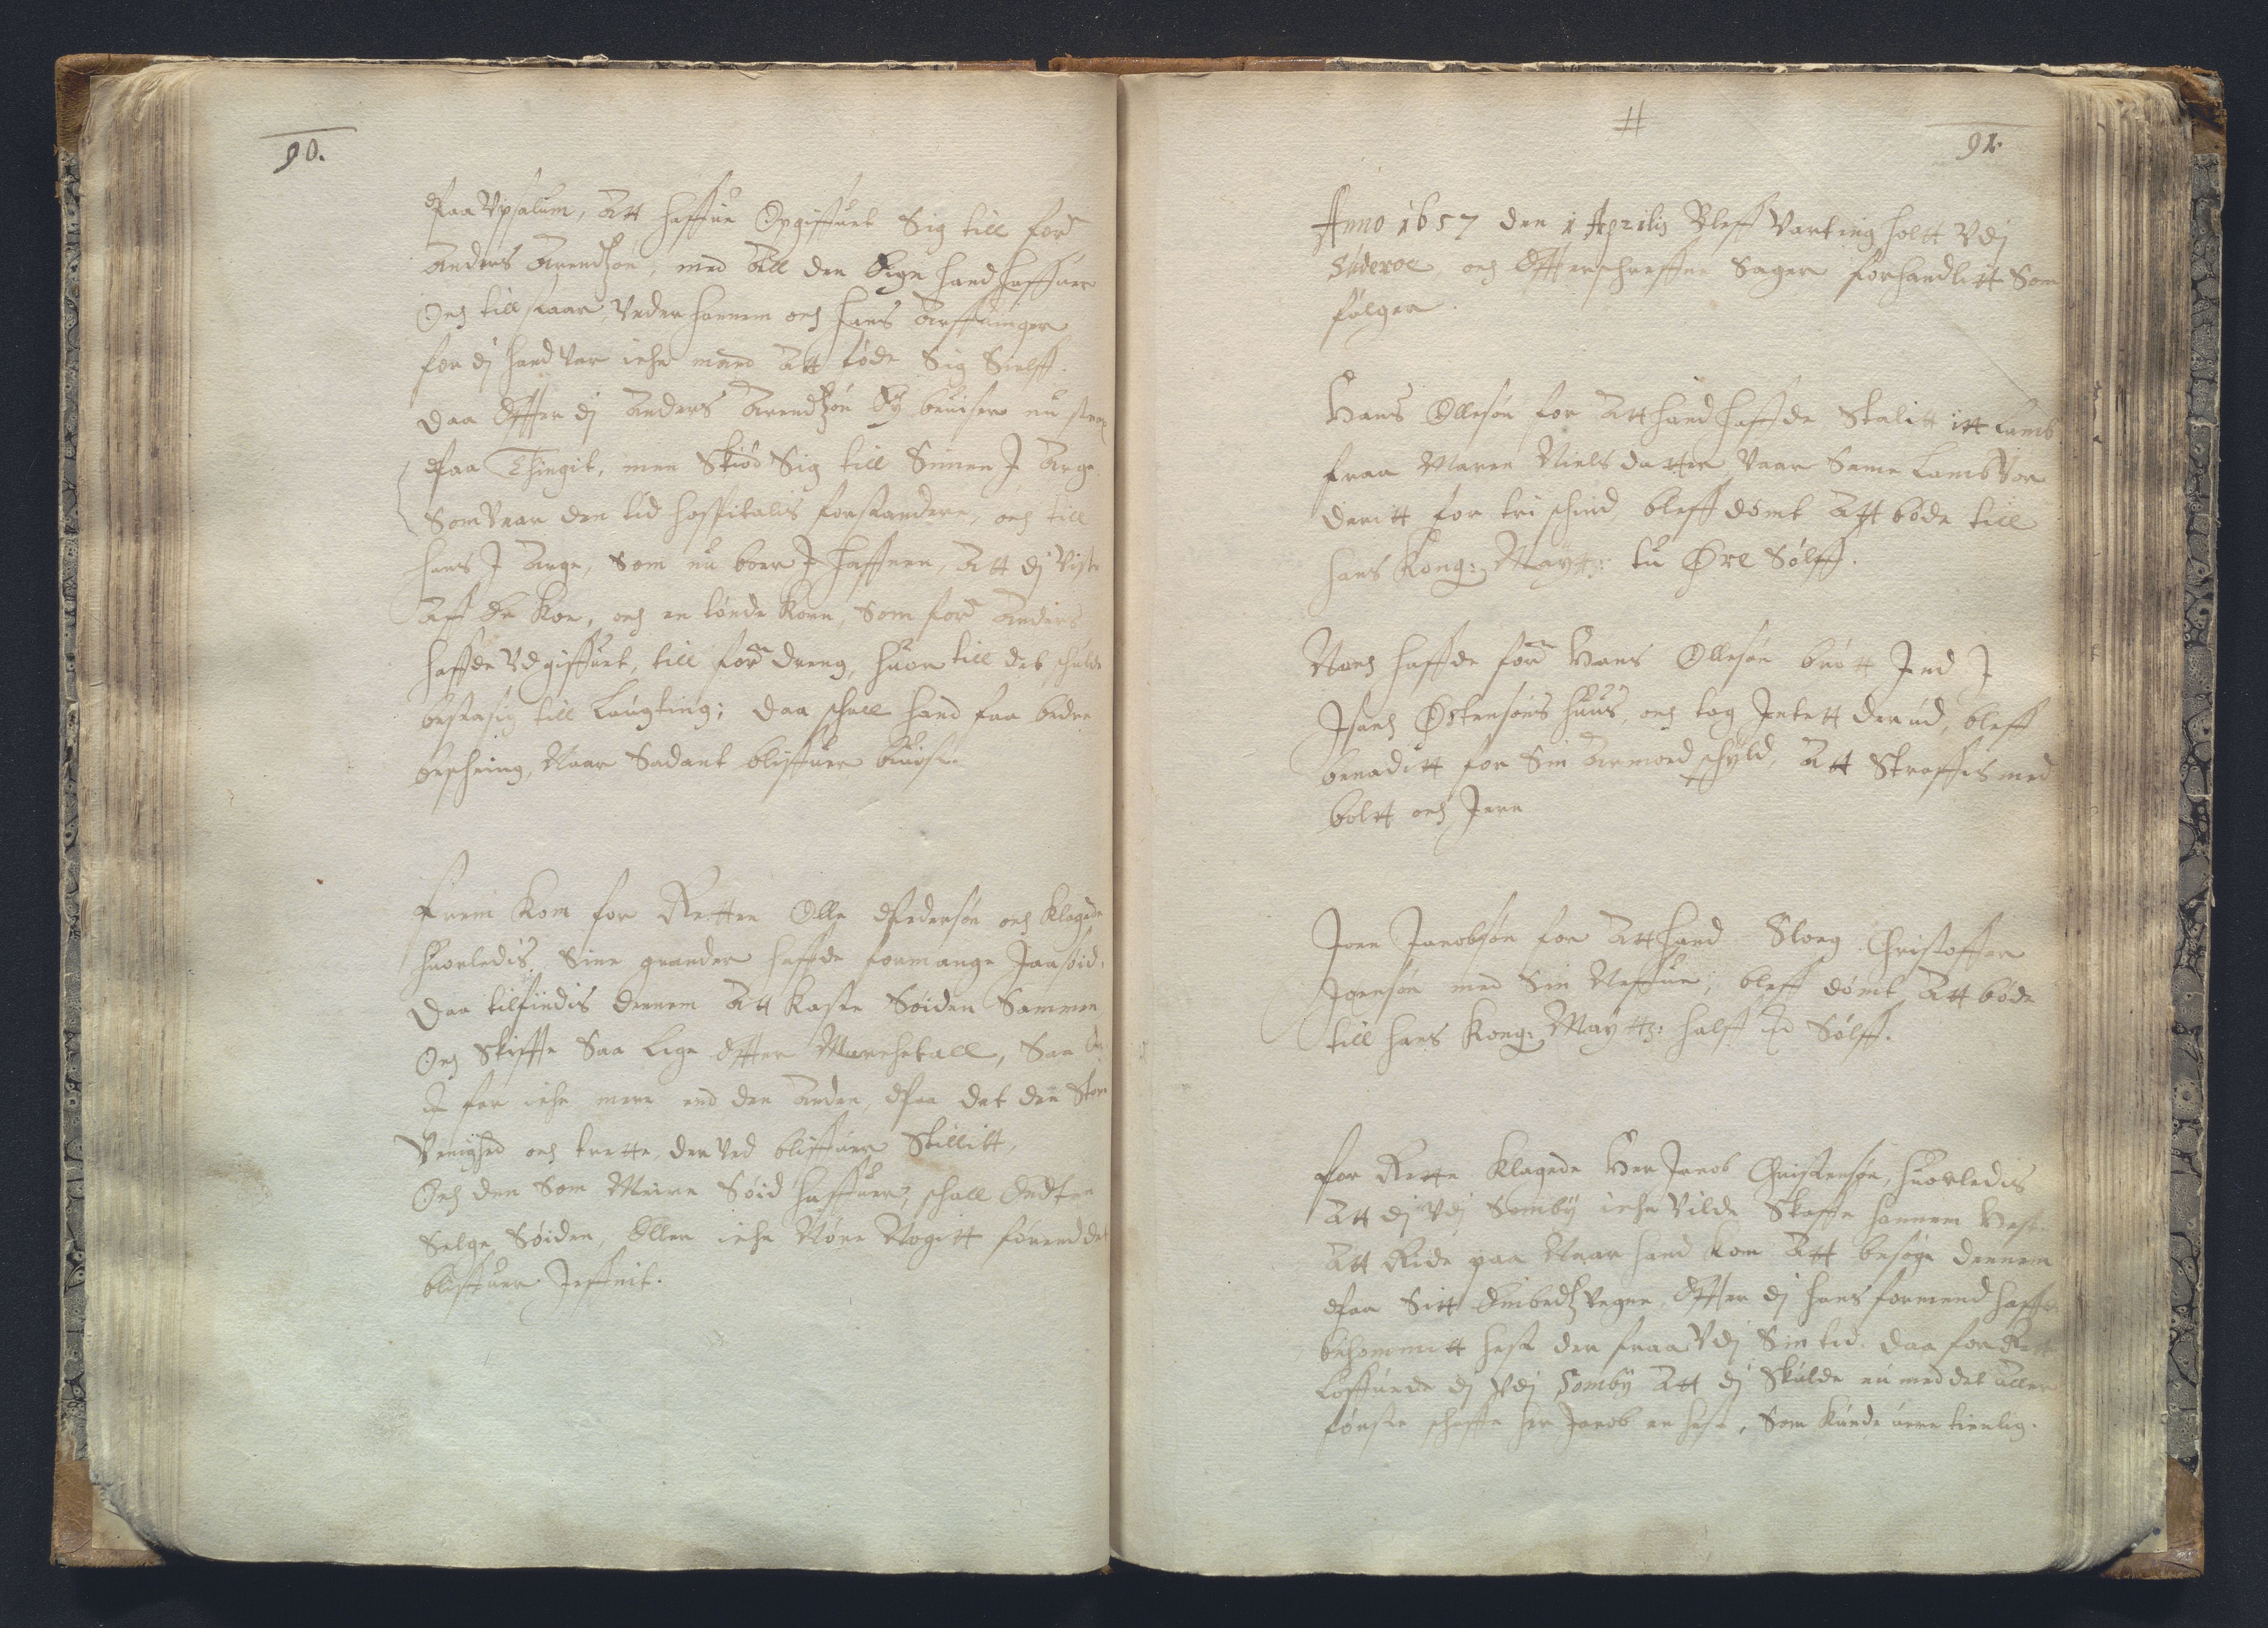 90.
Paa Vpsalum, Att haffue Opgiffuet Sig till for:
Anders Arendsøn, med All den Eige hand haffuer
Och till staar, Vnder hannem och hans Arffuinger
for dj hand var iche mand Att føde Sig Sielff.
Daa Effter dj Anders Arendsøn Ey beuiser nu strax
Paa Thingit, men Skiød Sig till Simen J Arge
Som Vaar den tid hospitalis forstandere, och till
hans J Arge, Som nu boer J haffnen, Att dj Viste
Aff En Koe, och en tønde Korn, Som for: Anders
haffde Vdgiffuet, till forn: dreng, huor till det schulde
bestasig till Laugting; Daa schall hand faa bedre
beschring, Naar Sadant bliffuer beuist.
Frem Kom for Retten Olle Pedersøn och Klagede
huorledis Sine grander haffde formange Faarsøid,
Daa tilfindis dennem Att Kaste Søiden Sammen
Och Skiffte Saa Lige Effter Marchetall, Saa En
icke faar iche mere end den Anden, Paa det den Store
Venighed och trette, der ved bliffuer Skillitt,
Och den Som Meire Søid haffuer, schall Endten
Selge Søiden, Eller iche Nøre Nogitt førend det
bliffuer Jeffnit.
91.
Anno 1657 den 1 Aprilis Bleff Varting holtt Vdj
Süderoe, och Effterschreffne Sager forhandlitt Som
følger.
Hans Ollesøn for Att hand haffde Stalitt itt Lamb
fraa Maren Nielsdatter Vaar Same Lamb Vor
deritt for tri schind, bleff dømt Att bøde till
hans Kong: Maytt: tu Øre Sølff.
Noch haffde forn: Hans Ollesøn brøtt Ind J
Isach Østensøns huus, och tog Intett der ud, bleff
benaditt for Sin Armoed schyld, Att Straffis med
boltt och Jern
Joen Jacobsøn for Att hand Sloeg Christoffer
Joensøn med Sin Neffue, bleff dømt Att bøde
till hans Kong: Maytt: halff Lod Sølff.
for Rette Klagede Her Jacob Christensøn, huorledis
Att dj Vdj Sømby iche Vilde Skaffe hannem Hest
Att Ride paa Naar hand kom Att besøge dennem
Paa Sitt Embedz Vegne, Effter dj hans formend haffde
bekommitt hest der fraa Vdj Sin tid. Daa for Rett
Loffuede dj Vdj Somby Att dj Skulde nu med det aller
første schaffe her Jacob en hest, Som kunde uere tienlig.